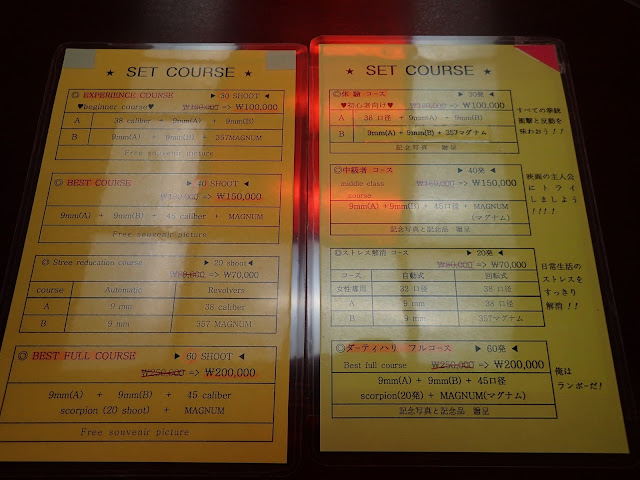 ★ SET COURSE ★
◎ EXPERIENCE COURSE ▶ 30 SHOOT ◀
♥beginner course♥ ₩130,000 => ₩100,000
A 38 caliber + 9mm(A) + 9mm(B)
B 9mm(A) + 9mm(B) + 357MAGNUM
Free souvenir picture
◎ BEST COURSE ▶ 40 SHOOT ◀
=> ₩150,000
9mm(A) + 9mm(B) + 45 caliber + MAGNUM
Free souvenir picture
◎ Stree reducation course ▶ 20 shoot◀
=> ₩70,000
course Automatic Revolvers
A 9 mm 38 caliber
B 9 mm 357 MAGNUM
◎ BEST FULL COURSE ▶ 60 SHOOT ◀
₩250,000 => ₩200,000
9mm(A) + 9mm(B) + 45 caliber
scorpion (20 shoot) + MAGNUM
Free souvenir picture
★ SET COURSE ★
◎体 験 コース ▶ 30発 ◀
♥初心者向け♥ => ₩100,000
A 38 口径 + 9mm(A) + 9mm(B)
B 9mm(A) + 9mm(B) + 357マグナム
記念写真 贈呈
すべての拳銃
衝撃と反動を
味わおう！！
◎中級者 コース ▶ 40発 ◀
middle class => ₩150,000
course
9mm(A) + 9mm(B) + 45口径 + MAGNUM
(マグナム)
記念写真と記念品 贈呈
映画の主人公
にトライ
しましよう
！！！！
◎ストレス解消 コース ▶ 20発 ◀
=> ₩70,000
コース 自動式 回転式
女性専用 32 口径 38 口径
A 9 mm 38 口径
B 9 mm 357マグナム
日常生活の
ストレスを
すっきり
解消！！
◎ダーティハリー フルコース ▶ 60発 ◀
Best full course ₩250,000 => ₩200,000
9mm(A) + 9mm(B) + 45口径
scorpion(20発) + MAGNUM(マグナム)
記念写真と記念品 贈呈
俺は
ランボーだ!